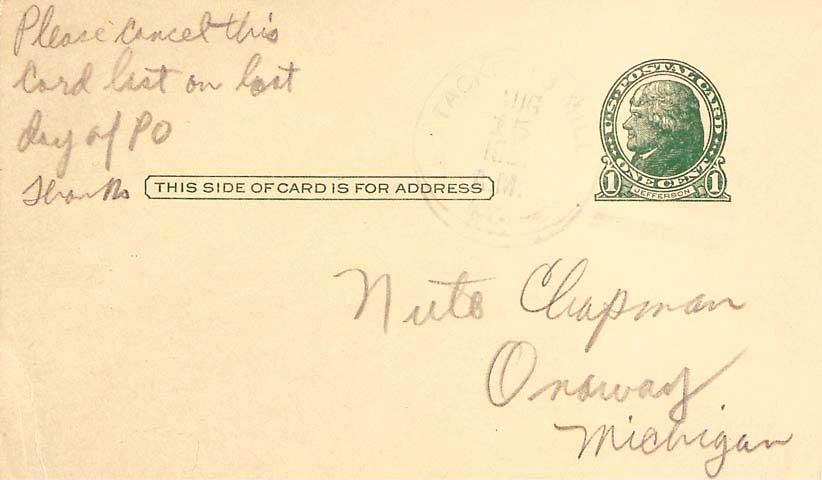 Please cancel this
Card last on last
day of PO
Thanks
THIS SIDE OF CARD IS FOR ADDRESS
U.S. POSTAL CARD
ONE CENT
1 JEFFERSON 1
AUG
Chapman
Onaway
Michigan